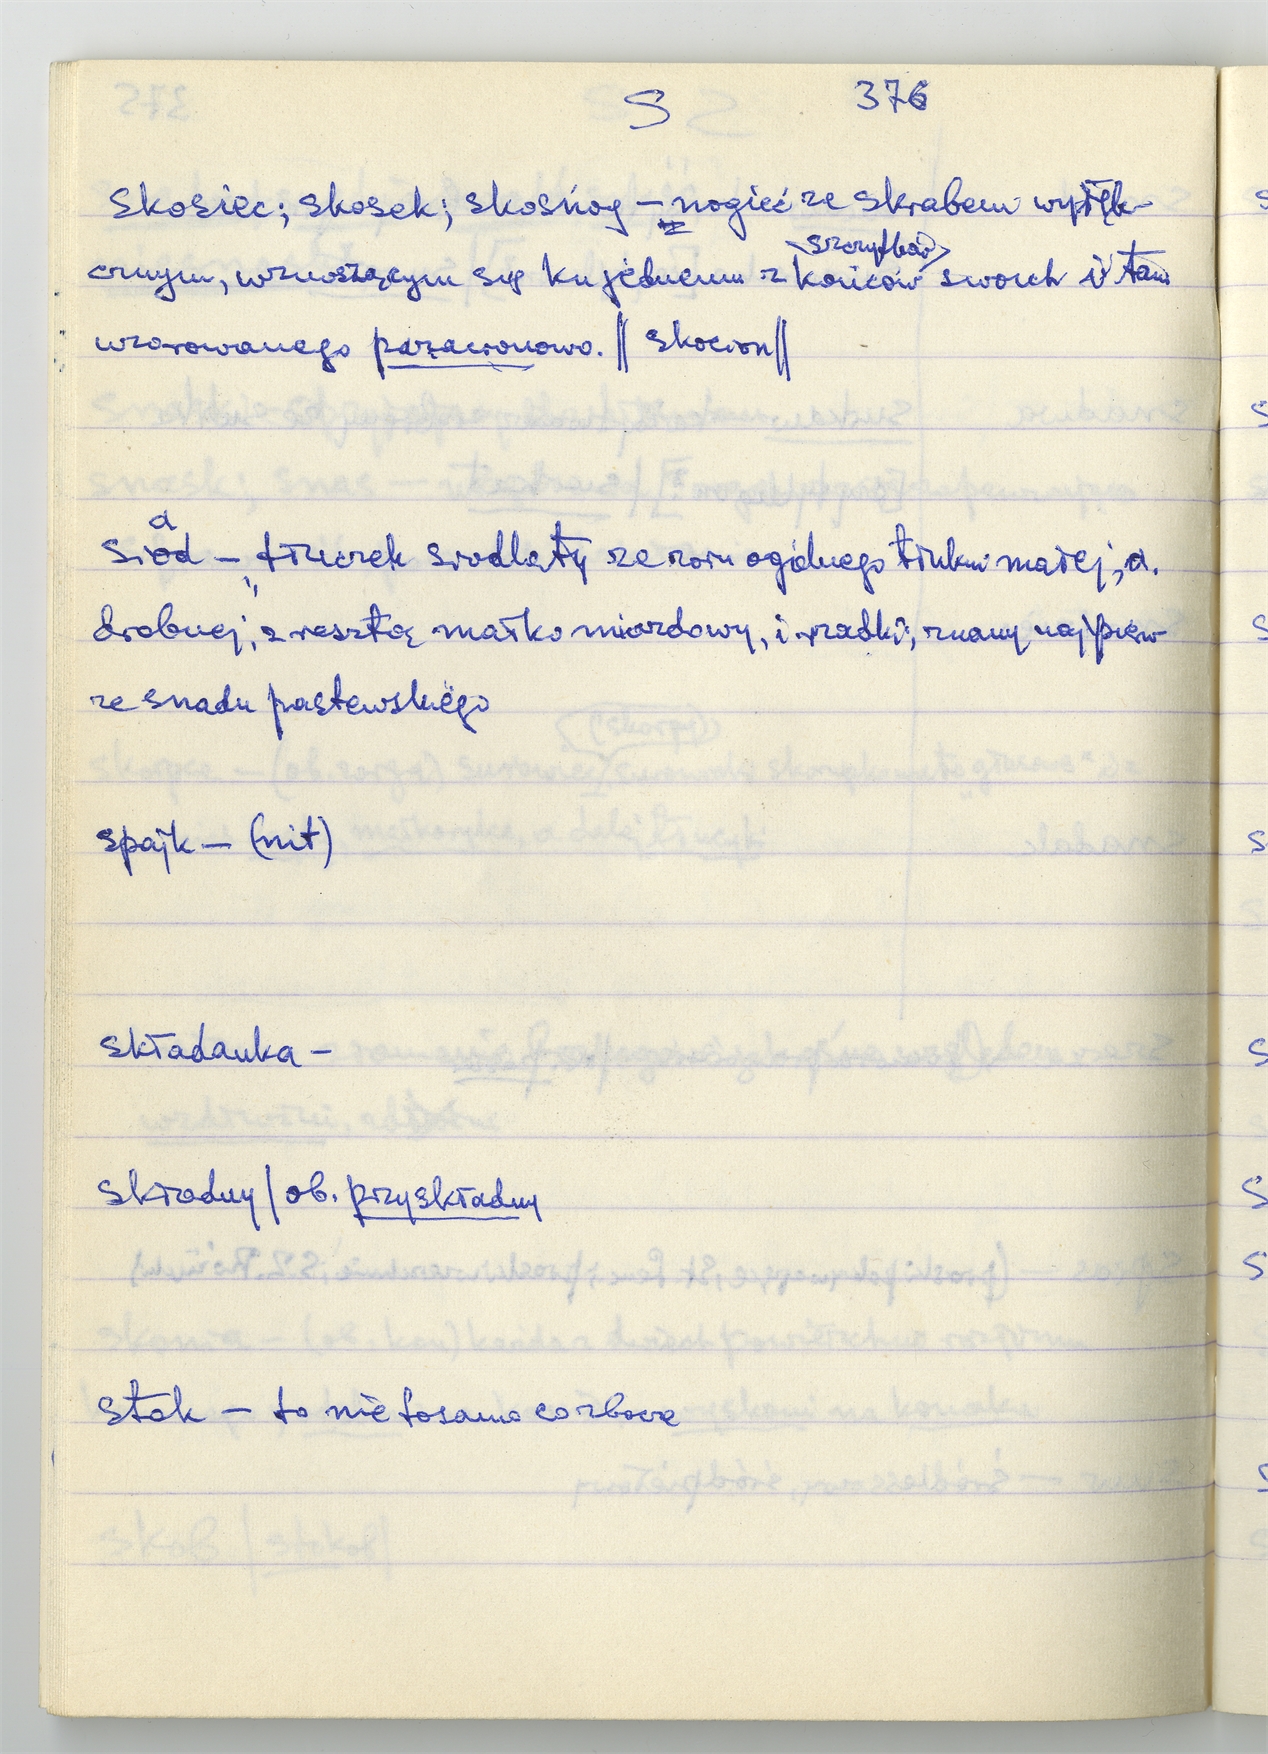 S 376
skosiec; skosek; skosnóg – nogieć ze skrabem wyłęb-
szczytków
cznym, wznoszącym się ku jednemu z końców swoich i tam
wzorowanego pazaczonowo. || skocion ||
a
siod – tłuczek siodlaty ze zoru ogólnego tłuków małej, a.
drobnej, z resztą małko miazdowy, i rzadki; znany najpierw
ze snadu pastewskiego
spajk – (nit)
składanka –
składny / ob. przyskładny
stok – to nie tosamo co zbocze